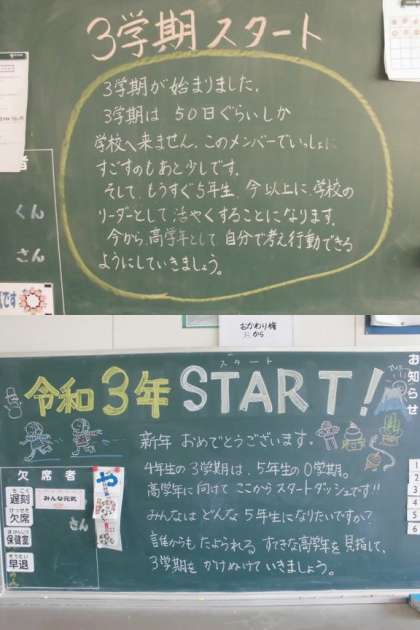 3学期スタート
3学期が始まりました。
3学期は 50日ぐらいしか
学校へ来ません。このメンバーでいっしょに
すごすのもあと少しです。
そして、もうすぐ5年生。今以上に、学校の
リーダーとして活やくすることになります。
今から、高学年として、自分で考え行動できる
ようにしていきましょう。
者
くん
さん
です
おかわり権
から
お知らせ
スタート
令和3年 START!
新年 おめでとうございます。
4年生の3学期は、5年生の0学期。
高学年に向けて ここからスタートダッシュです!!
みんなは どんな 5年生になりたいですか?
誰からも たよられる すてきな高学年を 目指して、
3学期を かけぬけて いきましょう。
欠席者
遅刻
みんな元気
さん
欠席
保健室
早退
1
2
3
4
5
6